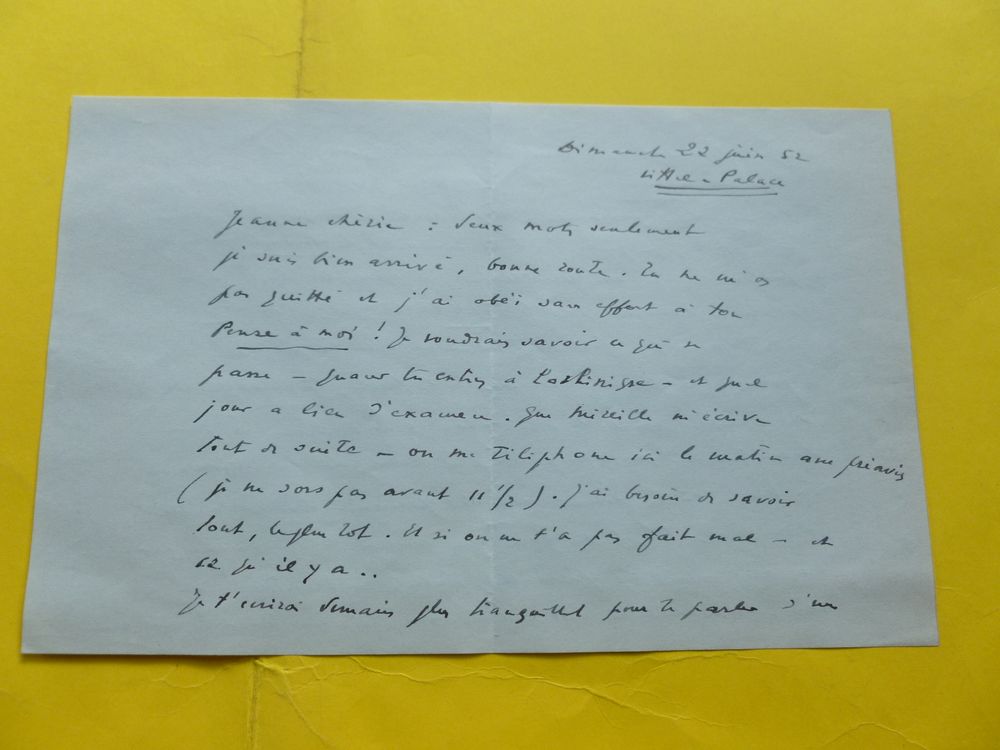 Dimanche 22 juin 52
Vittel-Palace
Jeanne chérie : deux mots seulement
je suis bien arrivé, bonne route. Tu ne m'as
pas quitté et j'ai obéi sans effort à ton
Pense à moi ! Je voudrais savoir ce qui se
passe – quand tu entres à – et quel
jour a lieu l'examen. Que Mireille m'écrive
tout de suite – ou me téléphone ici le matin avec préavis
(je ne sors pas avant 11 1/2). J'ai besoin de savoir
tout, le plus tôt. Et si on ne t'a pas fait mal – et
ce qu'il y a..
Je t'écrirai demain plus pour te parler d'un